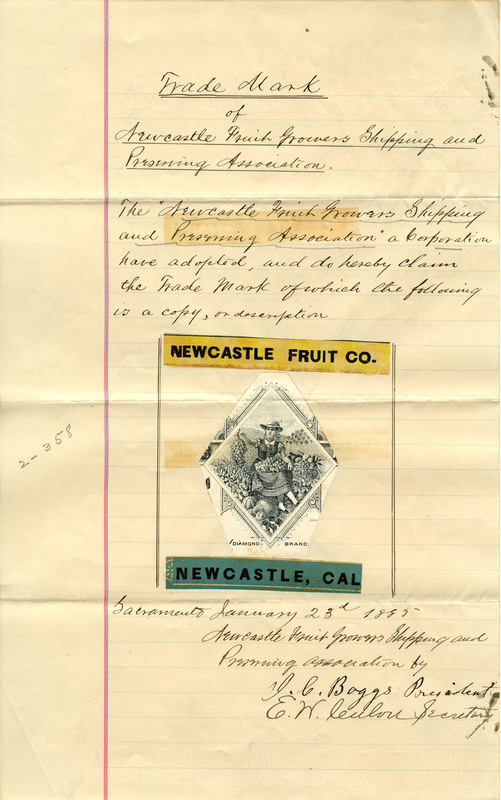 Trade Mark
of
Newcastle Fruit Growers Shipping and
Preserving Association.
The "Newcastle Fruit Growers Shipping
and Preserving Association" a Corporation
have adopted, and do hereby claim
the Trade Mark of which the following
is a copy, or description
NEWCASTLE FRUIT CO.
DIAMOND BRAND.
NEWCASTLE, CAL
2-358
Sacramento January 23d 1885
Newcastle Fruit Growers Shipping and
Preserving association by
J. C. Boggs President
E. W. Secretary